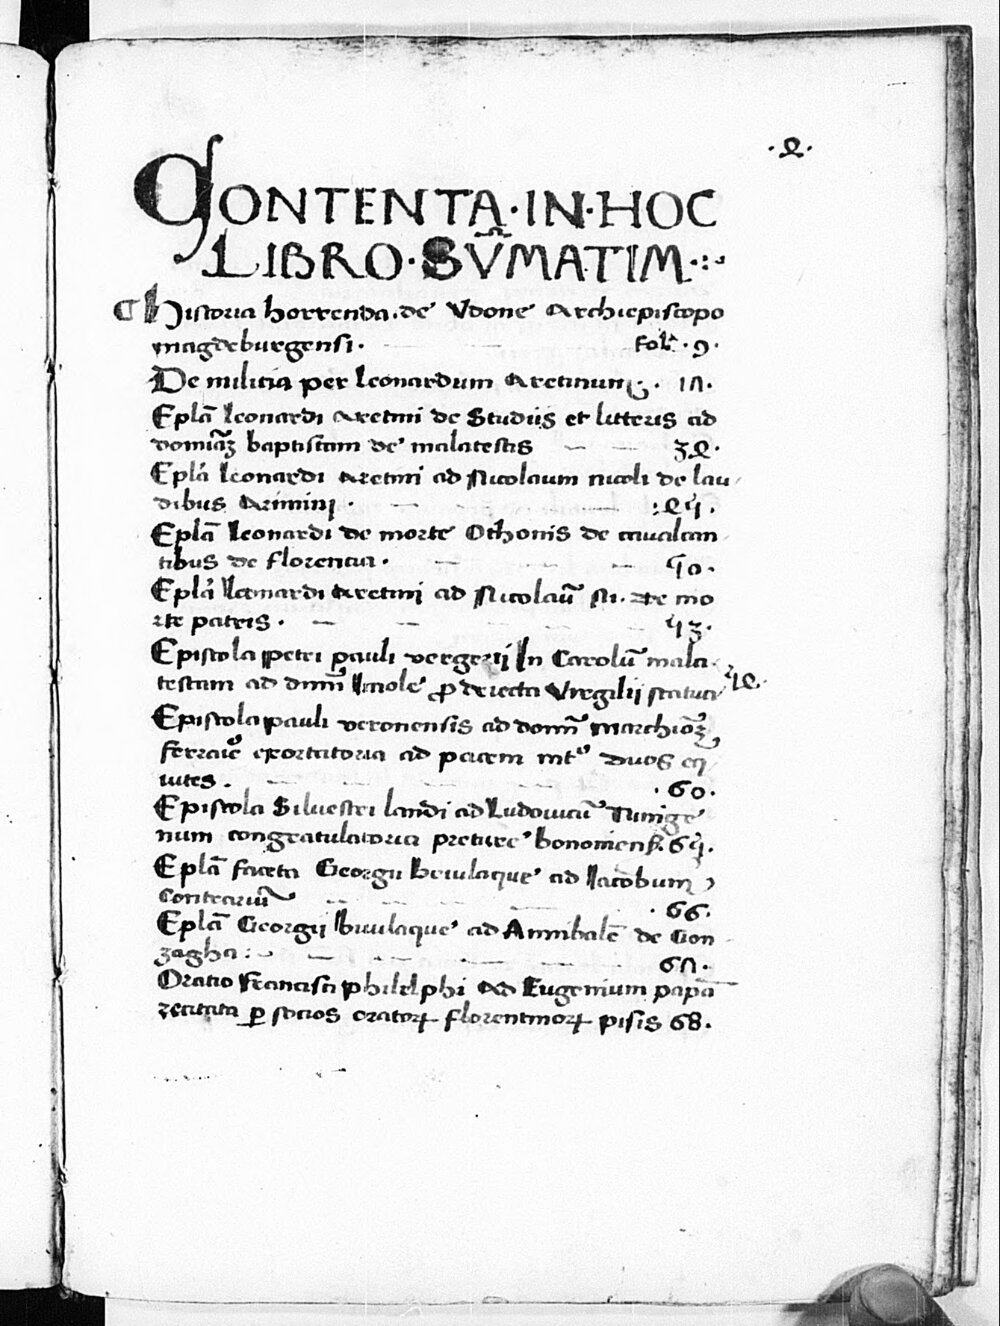 ·4·
CONTENTA·IN·HOC
LIBRO·SV̄MATIM·:~
Historia horrenda. de Vdone Archiepiscopo
magdeburgensi · fol. · 9 ·
De militia per leonardum Aretinum · 17 ·
Eplā leonardi Aretini de Studiis et litteris ad
dominā baptistam de malatestis 34 ·
Eplā leonardi Aretini ad Nicolaum nicoli de lau
dibus Arimini · 45 ·
Eplā leonardi de morte Othonis de caualcan
tibus de florentia · 50 ·
Eplā leonardi Aretini ad Nicolaū N. de mo
rte patris · 53 ·
Epistola petri pauli vergerij In Carolū mala
testam ad dnm̄ ꝓ deiecta Virgilij statua 54 ·
Epistola pauli veronensis ad dom̄ marchionē
ferrarie exortatoria ad pacem int͛ duos eq
uites · · 60 ·
Epistola Siluestri landi ad Ludouicū
num congratulatoria preture bononiens. 65 ·
Eplā faceta Georgii beuilaque ad Iacobum
contrarinū · 66 ·
Eplā Georgij biuilaque ad Annibalē de Gon
zagha : 67 ·
Oratio Francisci philelphi Ad Eugenium papā
recitata ꝑ socios oratoꝝ florentinoꝝ pisis 68 ·